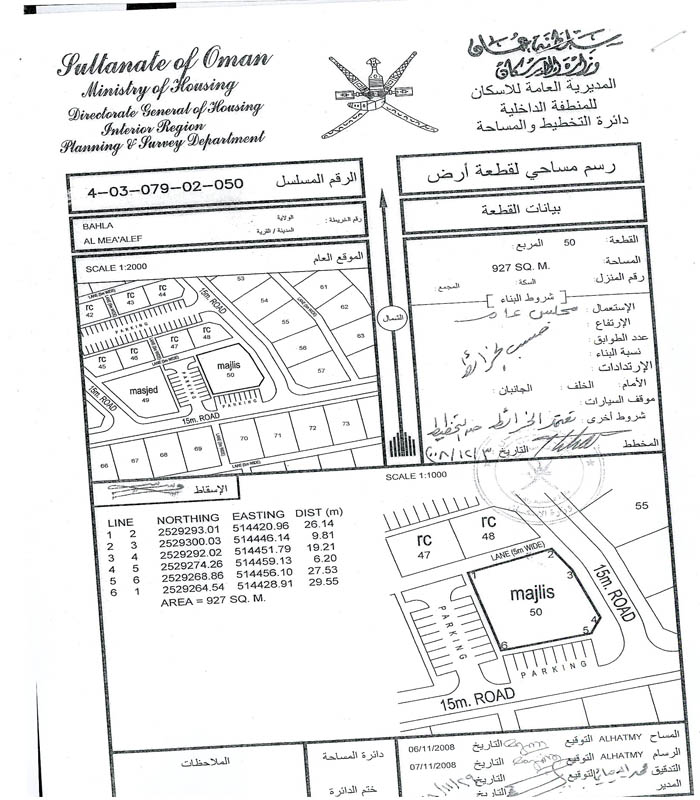 Sultanate of Oman
Ministry of Housing
Directorate General of Housing
Interior Region
Planning & Survey Department
سلطنة عمان
وزارة الإسكان
المديرية العامة للاسكان
للمنطقة الداخلية
دائرة التخطيط والمساحة
4-03-079-02-050 الرقم المسلسل
BAHLA الولاية
AL MEA'ALEF المدينة / القرية
رقم الخريطة :
الموقع العام
SCALE 1:2000
رسم مساحي لقطعة أرض
بيانات القطعة
القطعة: 50 المربع:
المساحة: 927 SQ. M.
رقم المنزل السكة: المجمع:
شروط البناء
الإستعمال: مجلس عام
الإرتفاع:
عدد الطوابق:
نسبة البناء:
الإرتدادات:
الأمام: الخلف: الجانبان:
موقف السيارات:
شروط أخرى:
المخطط التاريخ
الشمال
rc 42
rc 43
rc 44
LANE (5m WIDE)
PARKING
rc 45
rc 46
rc 47
rc 48
LANE (5m WIDE)
15m. ROAD
53
54
55
56
57
60
61
62
63
masjed 49
majlis 50
PARKING
15m. ROAD
15m. ROAD
66
67
68
69
LANE (5m WIDE)
70
71
72
73
الإسقاط
SCALE 1:1000
LINE NORTHING EASTING DIST (m)
1 2 2529293.01 514420.96 26.14
2 3 2529300.03 514446.14 9.81
3 4 2529292.02 514451.79 19.21
4 5 2529274.26 514459.13 6.20
5 6 2529268.86 514456.10 27.53
6 1 2529264.54 514428.91 29.55
AREA = 927 SQ. M.
rc 47
rc 48
55
LANE (5m WIDE)
15m. ROAD
majlis 50
1
2
3
4
5
6
PARKING
PARKING
15m. ROAD
الملاحظات
دائرة المساحة
ختم الدائرة
المساح ALHATMY التوقيع التاريخ 06/11/2008
الرسام ALHATMY التوقيع التاريخ 07/11/2008
التدقيق التوقيع التاريخ
المدير التاريخ